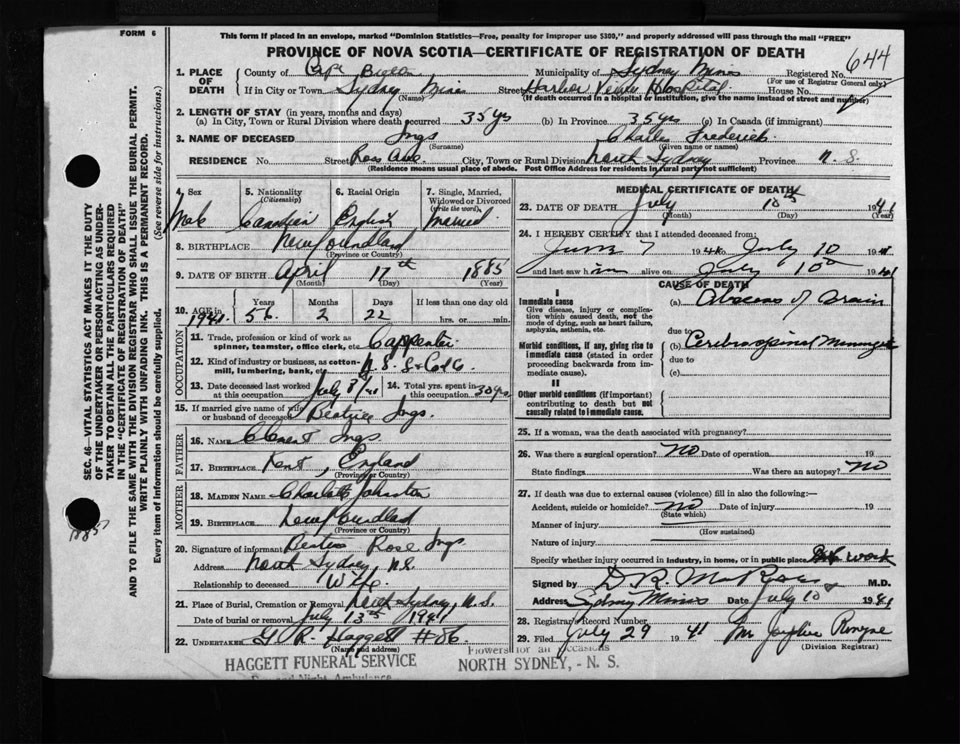 FORM 6
This form if placed in an envelope, marked "Dominion Statistics—Free, penalty for improper use $300," and properly addressed will pass through the mail "FREE"
PROVINCE OF NOVA SCOTIA—CERTIFICATE OF REGISTRATION OF DEATH
644
1. PLACE OF DEATH
County of Cape Breton Municipality of Sydney Mines Registered No.
(For use of Registrar General only)
If in City or Town Sydney Mines Street Harbor View Hospital House No.
(Name) (If death occurred in a hospital or institution, give the name instead of street and number)
2. LENGTH OF STAY (in years, months and days)
(a) In City, Town or Rural Division where death occurred 35 yrs (b) In Province 35 yrs (c) In Canada (if immigrant)
3. NAME OF DECEASED Ings Charles Frederick
(Surname) (Given name or names)
RESIDENCE No. Street Ross Ave. City, Town or Rural Division North Sydney Province N. S.
(Residence means usual place of abode. Post Office Address for residents in rural party not sufficient)
4. Sex 5. Nationality (Citizenship) 6. Racial Origin 7. Single, Married, Widowed or Divorced (write the word)
Male Canadian English Married
8. BIRTHPLACE Newfoundland
(Province or Country)
9. DATE OF BIRTH April 17th 1885
(Month) (Day) (Year)
10. AGE in 1941 Years 56 Months 2 Days 22 If less than one day old hrs. or min.
OCCUPATION
11. Trade, profession or kind of work as spinner, teamster, office clerk, etc. Carpenter
12. Kind of industry or business, as cotton-mill, lumbering, bank, etc. N. S. S & C
13. Date deceased last worked at this occupation July 3/41 14. Total yrs. spent in this occupation 30 yrs
15. If married give name of wife or husband of deceased Beatrice Ings.
FATHER
16. NAME Clement Ings
17. BIRTHPLACE Kent, England
(Province or Country)
MOTHER
18. MAIDEN NAME Charlotte Johnston
19. BIRTHPLACE Newfoundland
(Province or Country)
20. Signature of informant Rose Ings
Address North Sydney, N.S.
Relationship to deceased Wife
21. Place of Burial, Cremation or Removal North Sydney, N.S.
Date of burial or removal July 13th 1941
22. UNDERTAKER G. R. Haggett #86
(Name and address)
HAGGETT FUNERAL SERVICE
Day and Night Ambulance
MEDICAL CERTIFICATE OF DEATH
23. DATE OF DEATH July 10th 1941
(Month) (Day) (Year)
24. I HEREBY CERTIFY that I attended deceased from:
June 7 1941 to July 10 1941
and last saw him alive on July 10th 1941
CAUSE OF DEATH
I
Immediate cause
Give disease, injury or complication which caused death, not the mode of dying, such as heart failure, asphyxia, asthenia, etc.
(a) Abscess of brain
due to
Morbid conditions, if any, giving rise to immediate cause (stated in order proceeding backwards from immediate cause).
(b) Cerebrospinal Meningitis
due to
(c)
II
Other morbid conditions (if important) contributing to death but not causally related to immediate cause.
25. If a woman, was the death associated with pregnancy?
26. Was there a surgical operation? NO Date of operation 19
State findings Was there an autopsy? NO
27. If death was due to external causes (violence) fill in also the following:—
Accident, suicide or homicide? NO Date of injury 19
(State which)
Manner of injury
(How sustained)
Nature of injury
Specify whether injury occurred in industry, in home, or in public place work
Signed by D. R. M.D.
Address Sydney Mines Date July 10 1941
28. Registrar's Record Number
29. Filed July 29 1941
(Division Registrar)
Flowers for all Occasions
NORTH SYDNEY, - N. S.
SEC. 46—VITAL STATISTICS ACT MAKES IT THE DUTY
OF THE UNDERTAKER OR PERSON ACTING AS UNDER-
TAKER TO OBTAIN ALL THE PARTICULARS REQUIRED
IN THE "CERTIFICATE OF REGISTRATION OF DEATH"
AND TO FILE THE SAME WITH THE DIVISION REGISTRAR WHO SHALL ISSUE THE BURIAL PERMIT.
WRITE PLAINLY WITH UNFADING INK. THIS IS A PERMANENT RECORD.
Every item of information should be carefully supplied. (See reverse side for instructions.)
1885